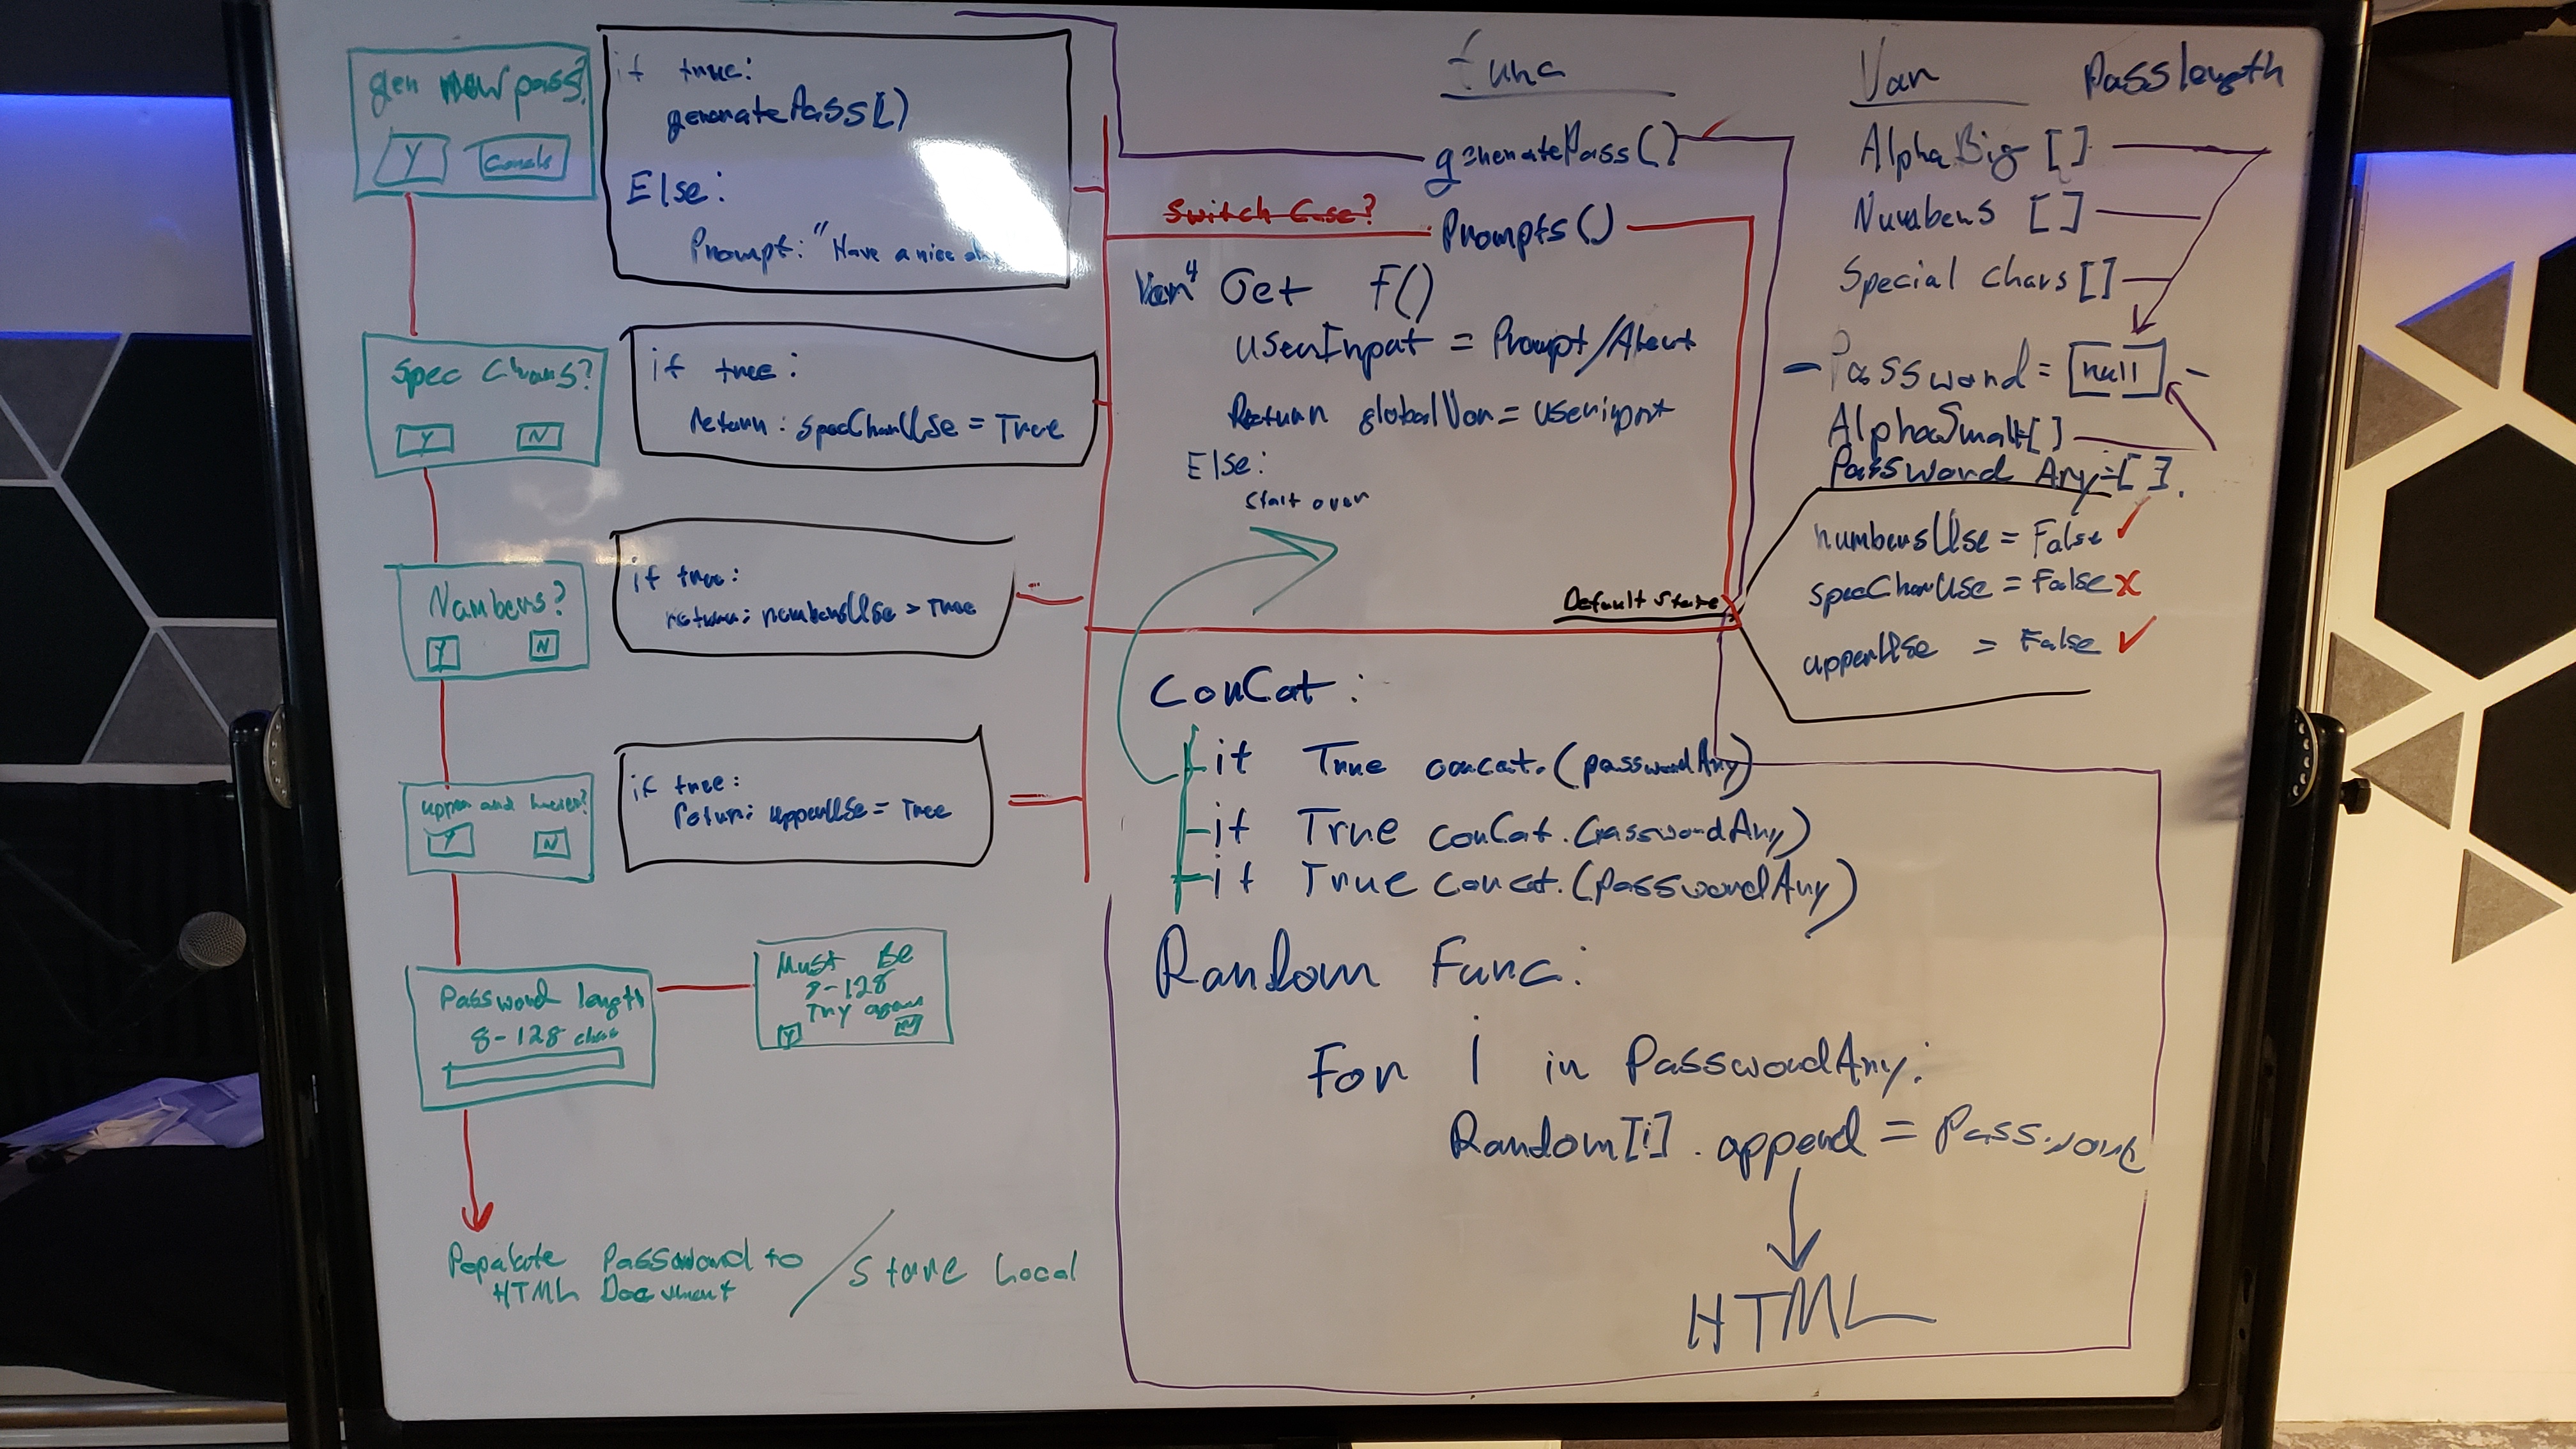 gen new pass?
Y
if true:
generatePass()
Else:
Prompt: "Have a nice
Spec Chars?
Y N
if true:
return: specCharUse = True
Numbers?
Y N
if true:
return: numbersUse = True
upper and lower?
Y N
if true:
return: upperUse = True
Password length
8-128 char
Must Be
8-128
Try again
Y N
Populate Password to
HTML Document
/ Store Local
func
generatePass()
Switch Case?
Prompts()
Var 4 Get F()
userInput = Prompt/Alert
Return globalVar = userinput
Else:
Start over
Default State
ConCat:
if True concat.(passwordAry)
if True conCat.(passwordAry)
if True concat.(passwordAry)
Random Func:
For i in PasswordAry:
Random[i].append = Password
HTML
Var
Passlength
AlphaBig []
Numbers []
Special Chars []
- Password = [null] -
AlphaSmall []
Password Ary = [].
numbersUse = False ✓
specCharUse = False X
upperUse = False ✓